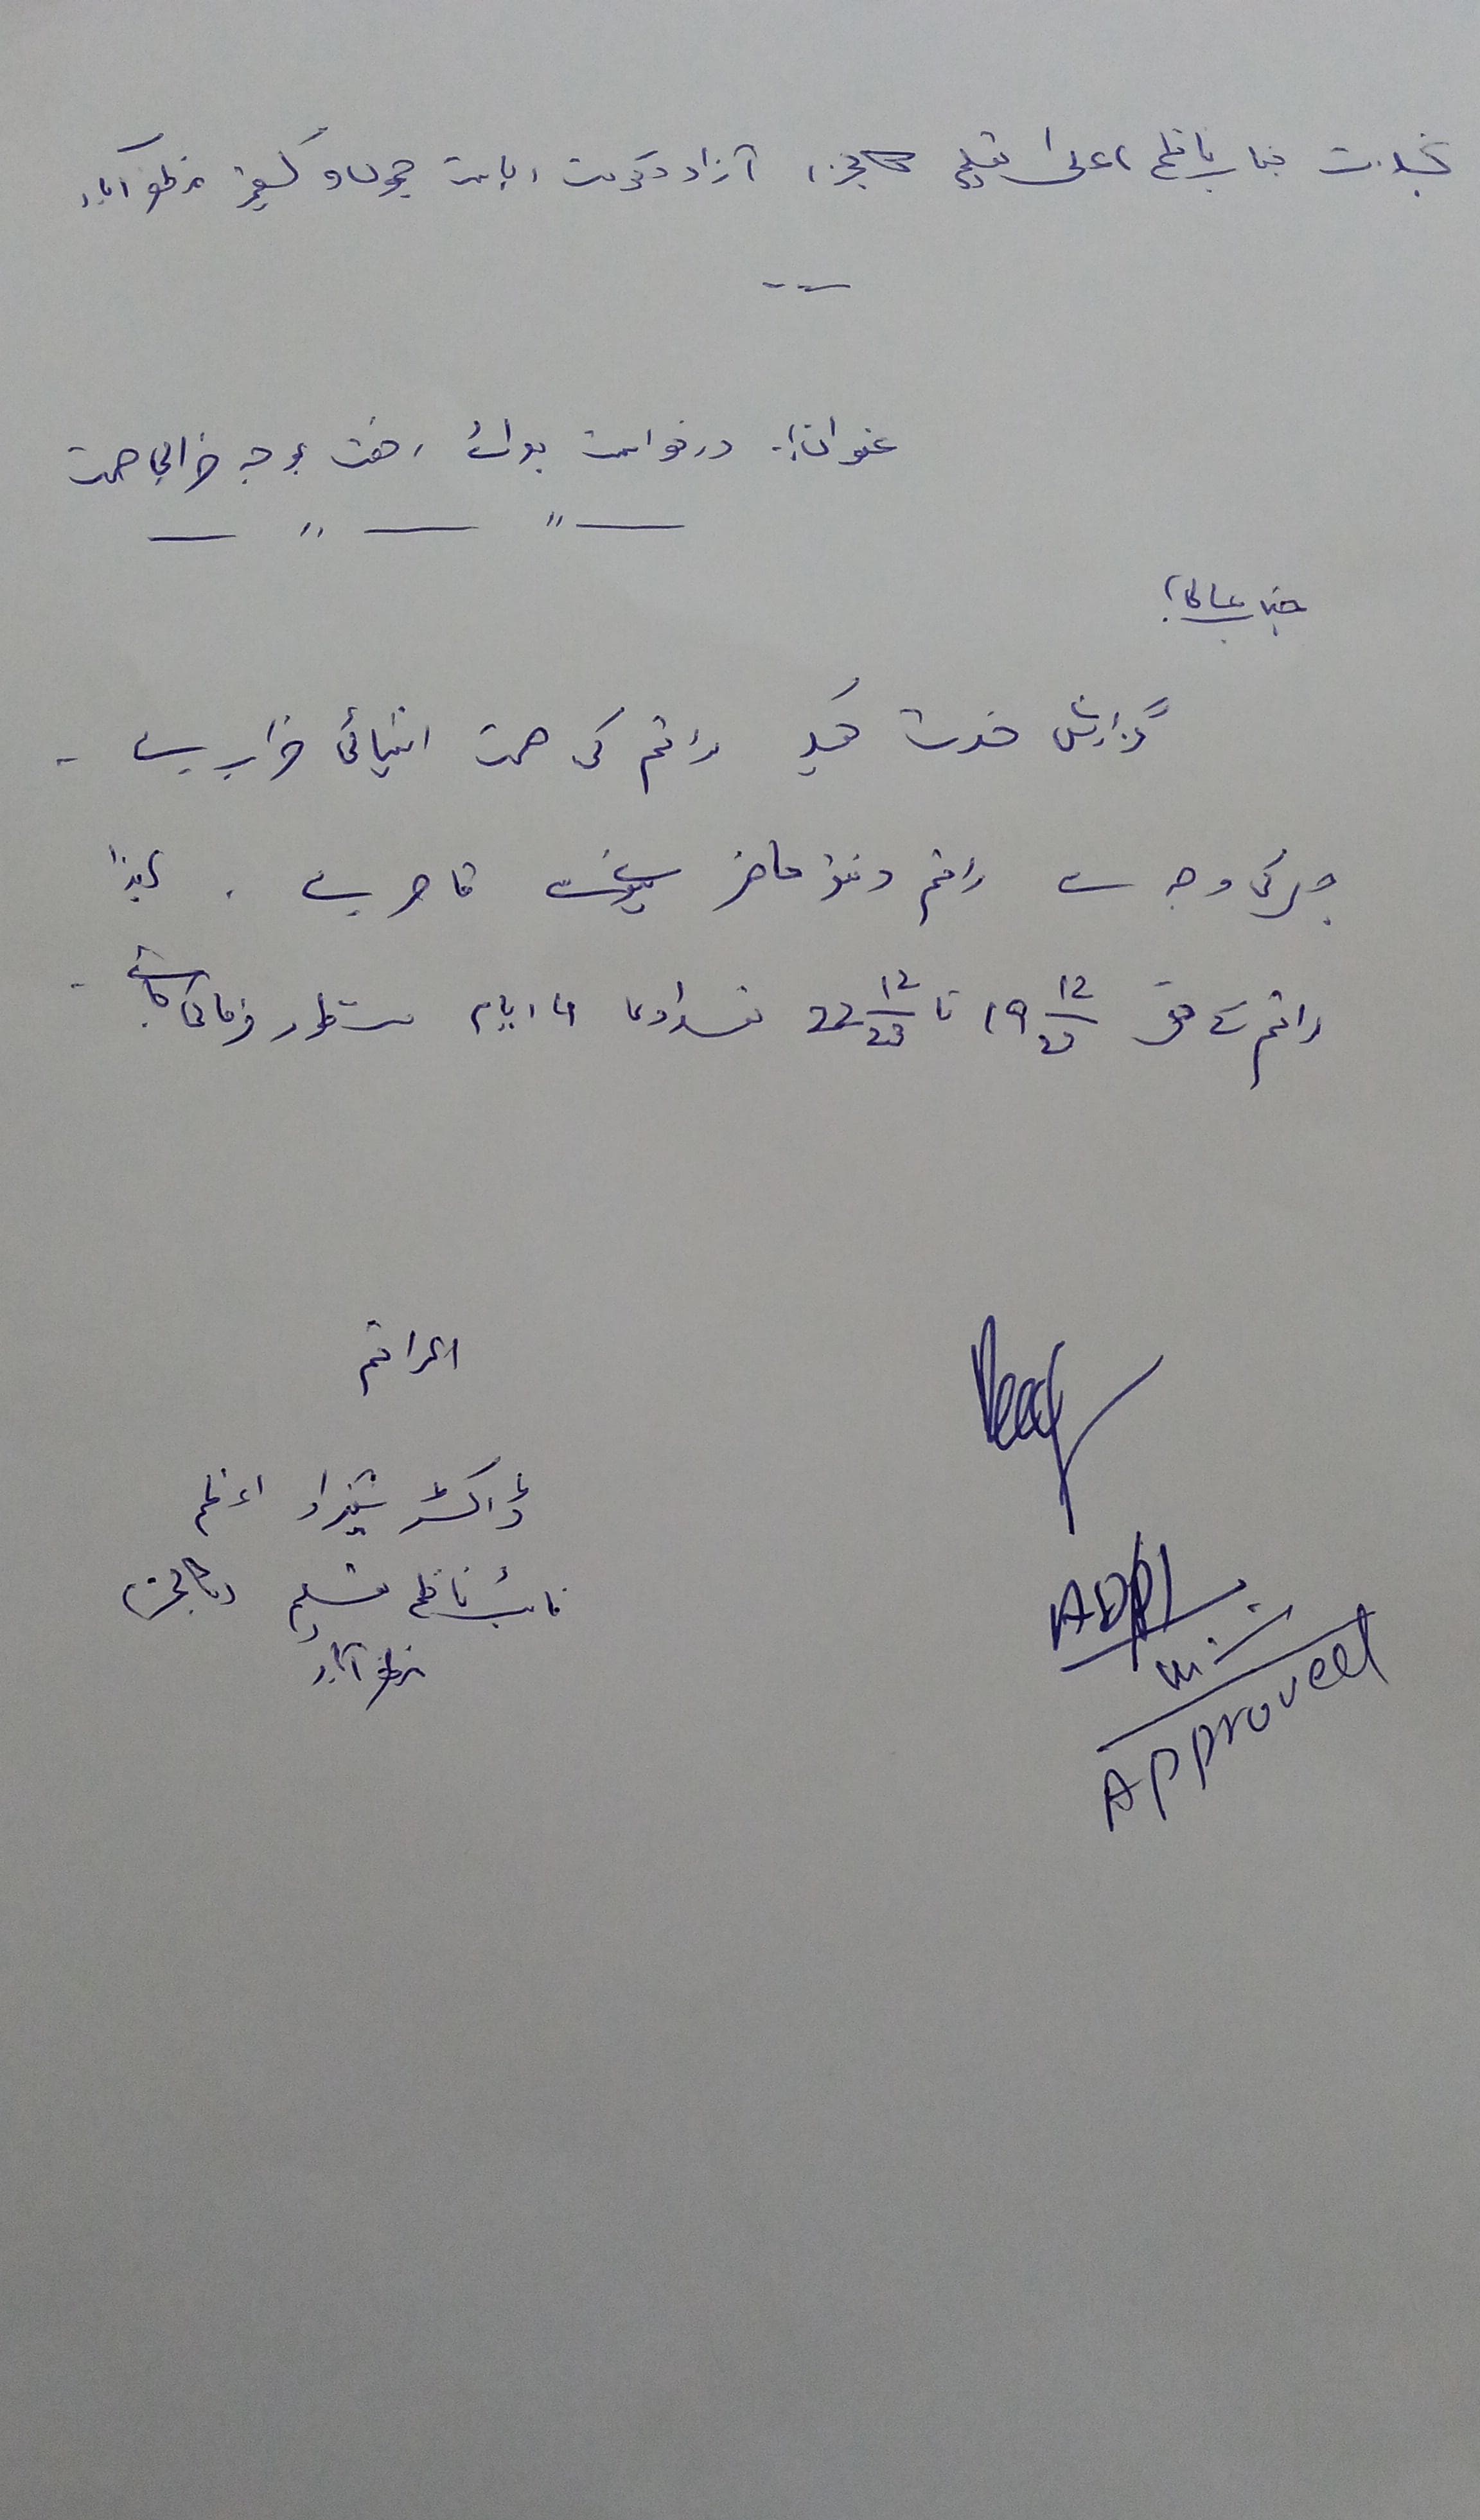 بخدمت جناب ناظم اعلیٰ تعلیم کالجز، آزاد حکومت ریاست جموں و کشمیر مظفرآباد
عنوان:۔ درخواست برائے رخصت بوجہ خرابی صحت
جناب عالی!
گزارش خدمت ہیکہ راقم کی صحت انتہائی خراب ہے ۔
جس کی وجہ سے راقم دفتر حاضر ہونے سے قاصر ہے ۔ لہذا
راقم کے حق 19 12/23 تا 22 12/23 تعدادی ایام منظور فرمائی جائے ۔
الراقم
ڈاکٹر شہزاد اعظم
نائب ناظم تعلیم کالجز
مظفرآباد
ADPI
Approved